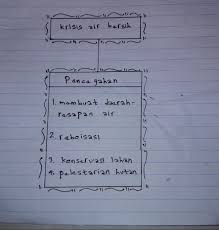 krisis air bersih
Pencegahan
1. membuat daerah-
resapan air
2. reboisasi
3. konservasi lahan
4. pelestarian hutan